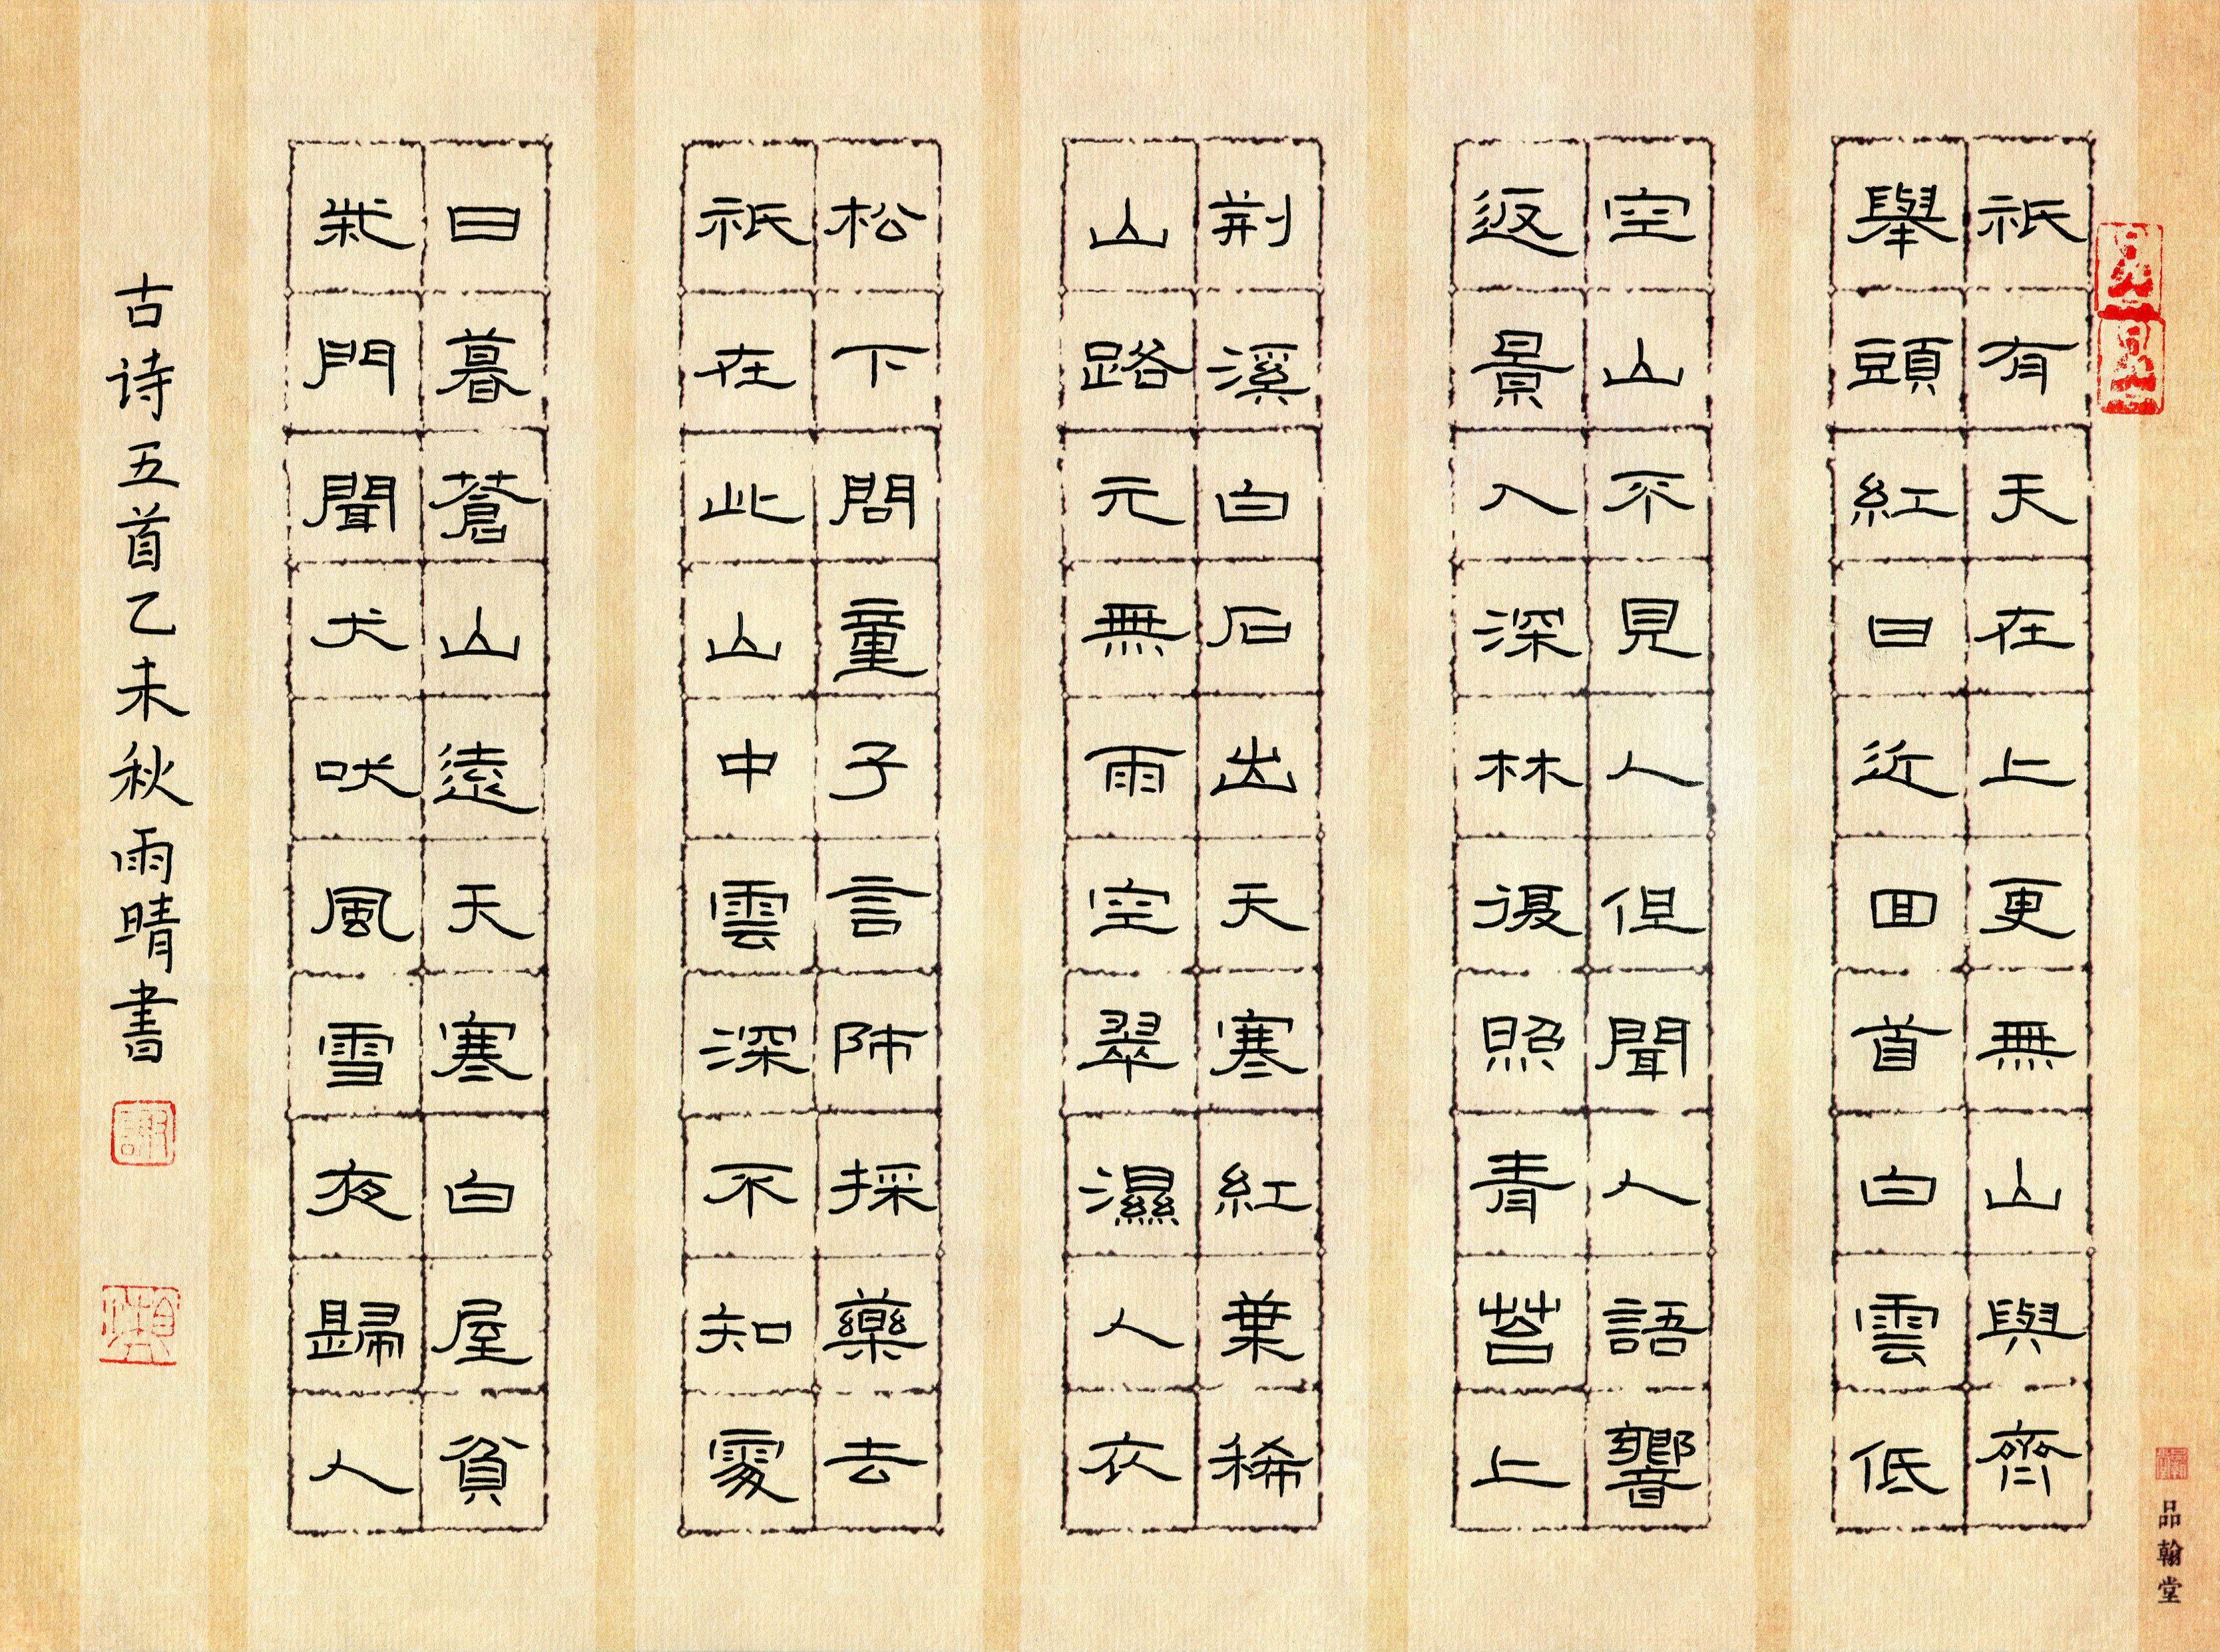 祇有天在上更無山與齊
舉頭紅日近回首白雲低
空山不見人但聞人語響
返景入深林復照青苔上
荆溪白石出天寒紅葉稀
山路元無雨空翠濕人衣
松下問童子言師採藥去
祇在此山中雲深不知處
日暮蒼山遠天寒白屋貧
柴門聞犬吠風雪夜歸人
古诗五首乙未秋雨晴書
品翰堂